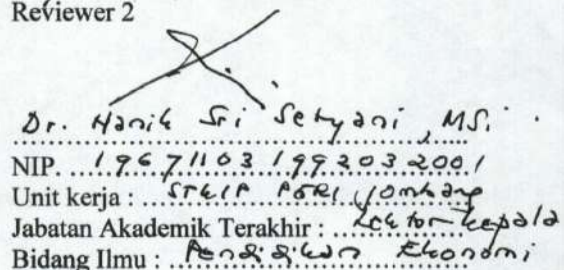 Reviewer 2
Dr. Hanik Sri Setyani, MSi.
NIP. 196711031992032001
Unit kerja : STKIP PGRI Jombang
Jabatan Akademik Terakhir : Lektor Kepala
Bidang Ilmu : Pendidikan Ekonomi